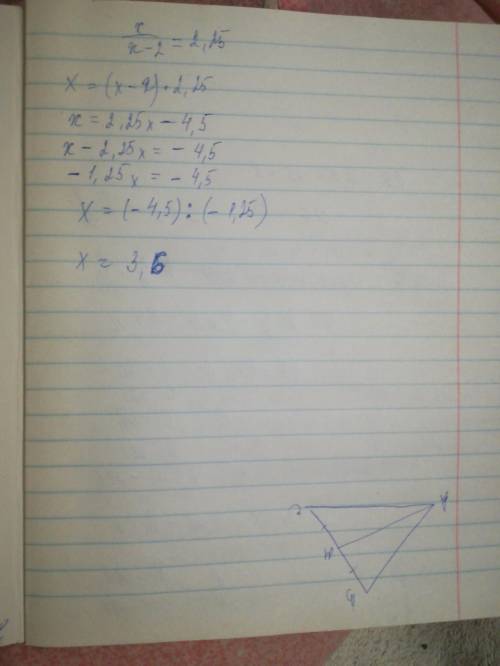 x/(x-2) = 2,25
x = (x-2)·2,25
x = 2,25x - 4,5
x - 2,25x = - 4,5
- 1,25x = - 4,5
x = (- 4,5) : (- 1,25)
x = 3,6